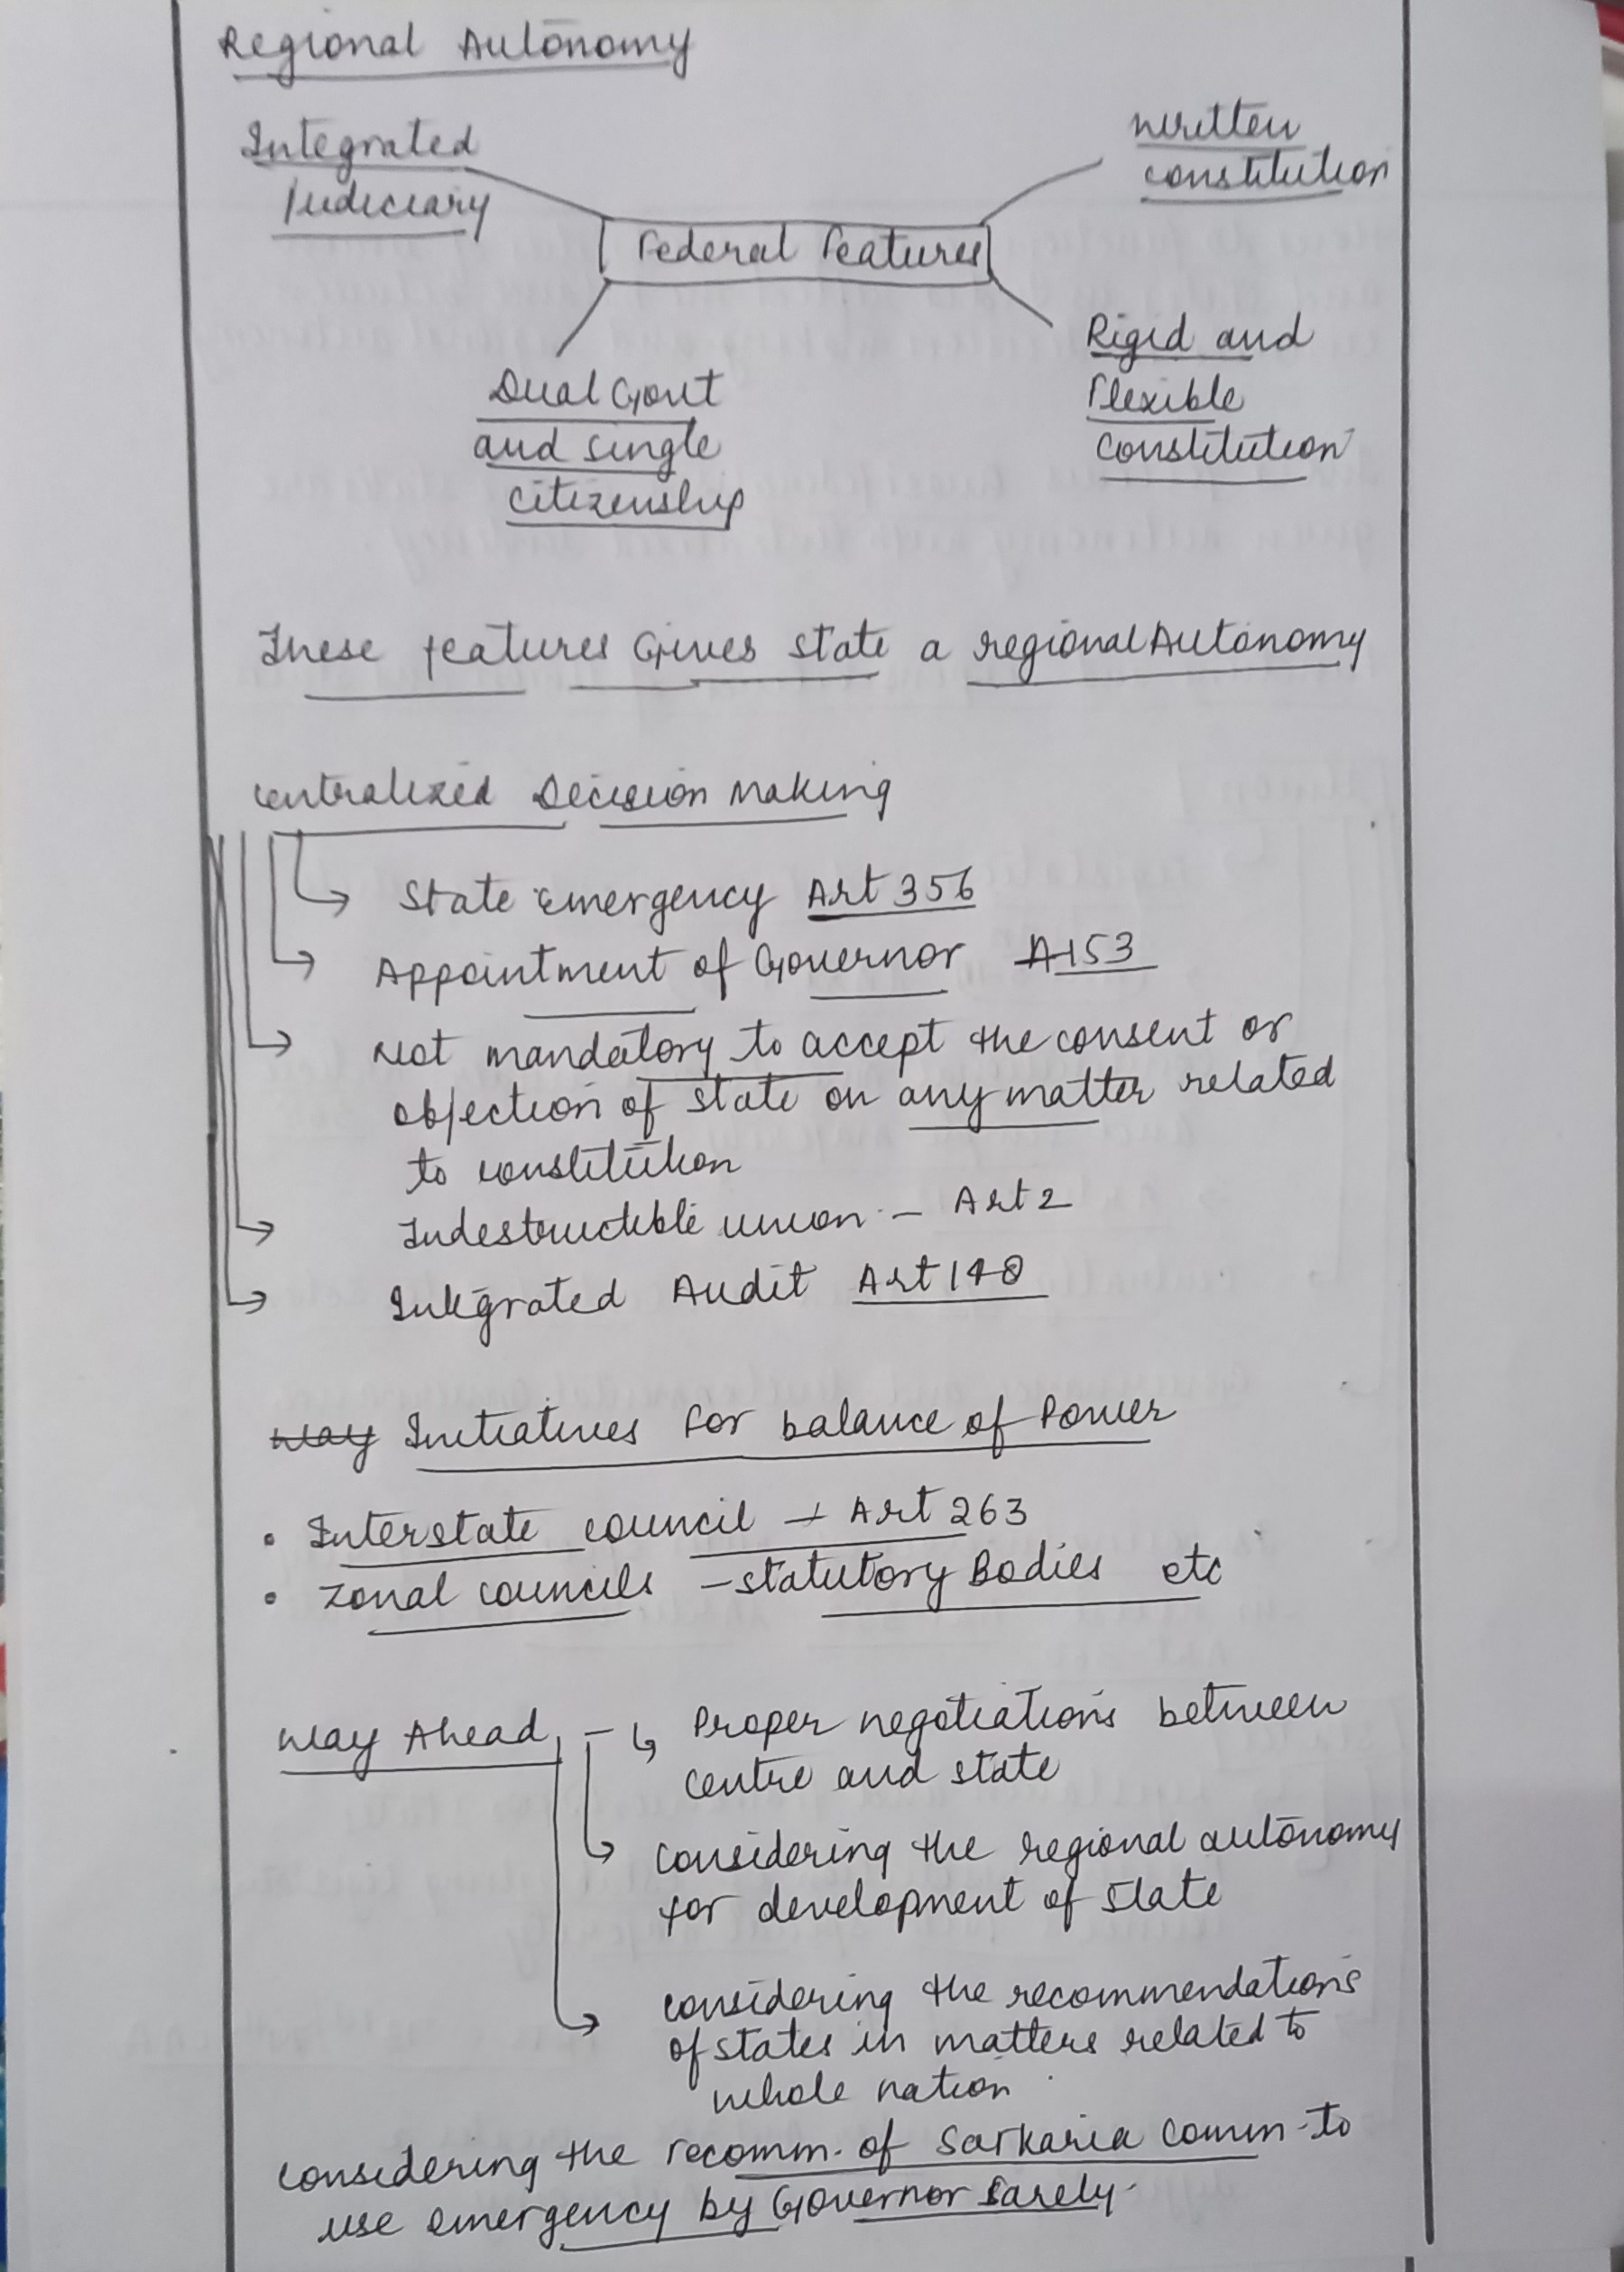 Regional Autonomy
Integrated
Judiciary
written
constitution
Federal Features
Dual Govt
and single
citizenship
Rigid and
Flexible
constitution
These features Gives state a regional Autonomy
centralized Decision Making
State Emergency Art 356
Appointment of Governor A153
Not mandatory to accept the consent or
objection of state on any matter related
to constitution
Indestructible union - Art 2
Integrated Audit Art 148
way Initiatives for balance of Power
• Interstate council → Art 263
• Zonal councils - statutory Bodies etc
Way Ahead - ↳ Proper negotiations between
centre and state
considering the regional autonomy
for development of state
considering the recommendations
of states in matters related to
whole nation.
considering the recomm. of Sarkaria Comm- to
use emergency by Governor rarely.